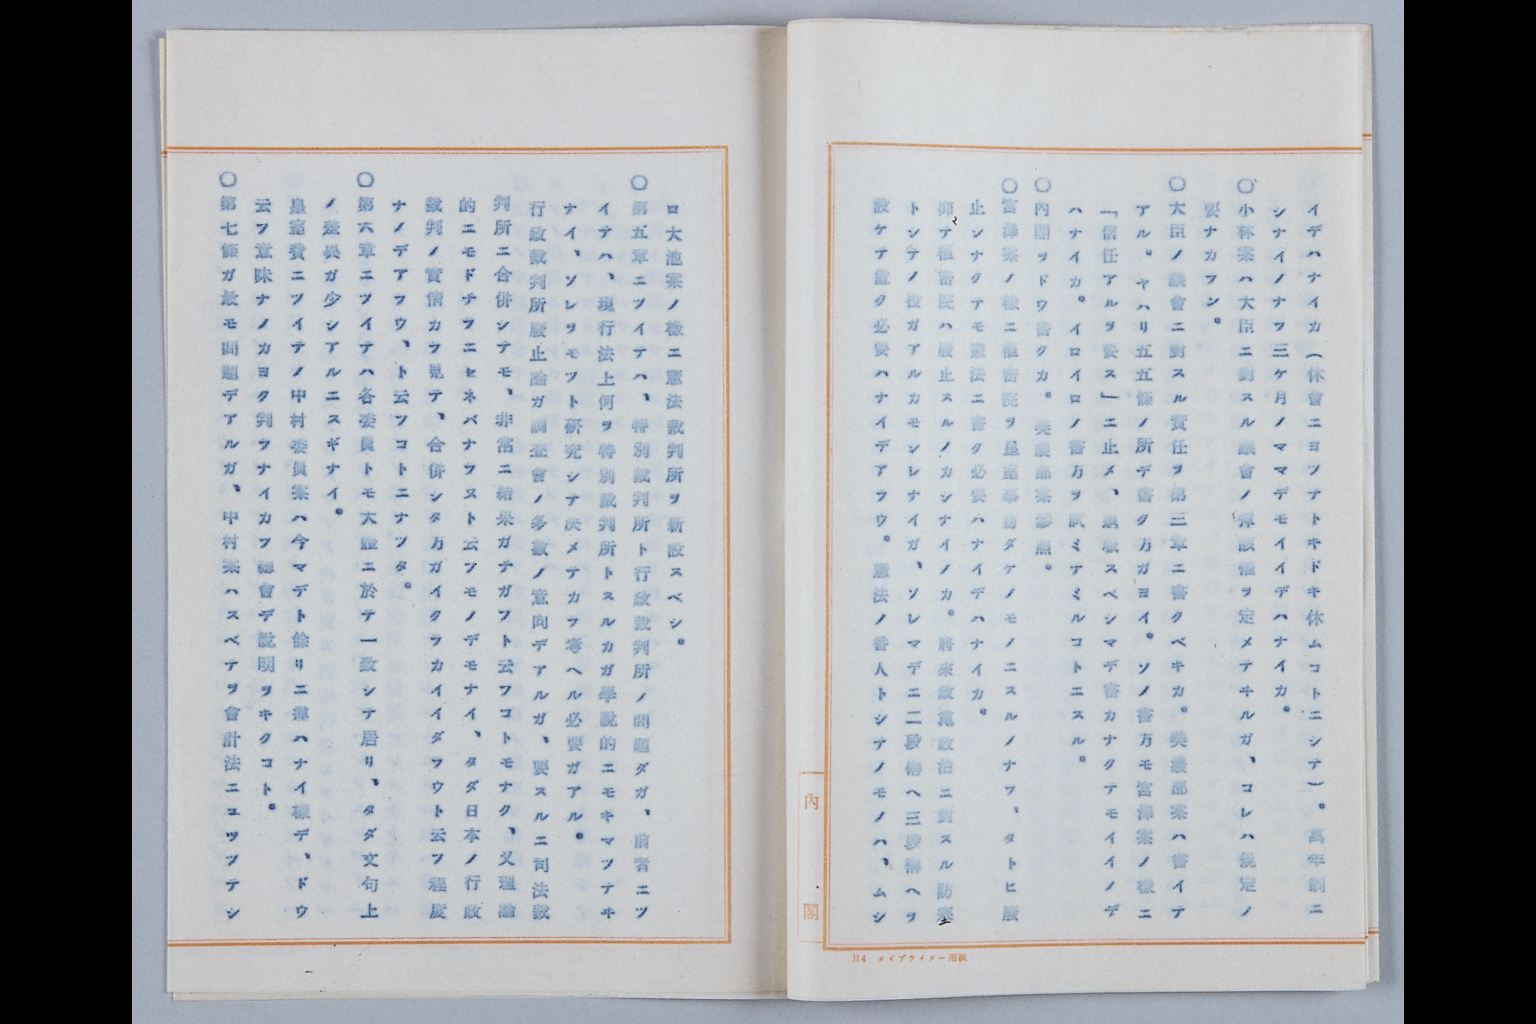 イデハナイカ(休會ニヨツテトキドキ休ムコトニシテ)。萬年制ニ
シナイノナラ三ケ月ノママデモイイデハナイカ。
〇小林案ハ大臣ニ對スル議會ノ彈劾權ヲ定メテヰルガ、コレハ規定ノ
要ナカラン。
〇大臣ノ議會ニ對スル責任ヲ第三章ニ書クベキカ。美濃部案ハ書イテ
アル。ヤハリ五五條ノ所デ書ク方ガヨイ。ソノ書方モ宮澤案ノ樣ニ
「信任アルヲ要ス」ニ止メ、退職スベシマデ書カナクテモイイノデ
ハナイカ。イロイロノ書方ヲ試ミアミルコトニスル。
〇內閣ヲドウ書クカ。美濃部案參照。
〇宮澤案ノ樣ニ樞密院ヲ皇室事務ダケノモノニスルノナラ、タトヒ廢
止シナクテモ憲法ニ書ク必要ハナイデハナイカ。
抑テ樞密院ハ廢止スルノカシナイノカ。將來政黨政治ニ對スル防塞
トシテノ役ガアルカモシレナイガ、ソレマデニ二段構ヘ三段構ヘヲ
設ケテ置ク必要ハナイデアラウ。憲法ノ番人トシテノモノハ、ムシ
ロ大池案ノ樣ニ憲法裁判所ヲ新設スベシ。
〇第五章ニツイテハ、特別裁判所ト行政裁判所ノ問題ダガ、前者ニツ
イテハ、現行法上何ヲ特別裁判所トスルカガ學說的ニモキマツテヰ
ナイ、ソレヲモツト研究シテ決メテカラ考ヘル必要ガアル。
行政裁判所廢止論ガ調査會ノ多數ノ意向デアルガ、要スルニ司法裁
判所ニ合併シテモ、非常ニ結果ガチガフト云フコトモナク、又理論
的ニモドチラニセネバナラヌト云フモノデモナイ、タダ日本ノ行政
裁判ノ實情カラ見テ、合併シタ方ガイクラカイイダラウト云フ程度
ナノデアラウ、ト云フコトニナツタ。
〇第六章ニツイテハ各委員トモ大體ニ於テ一致シテ居リ、タダ文句上
ノ差異ガ少シアルニスギナイ。
皇室費ニツイテノ中村委員案ハ今マデト餘リニ違ハナイ樣デ、ドウ
云フ意味ナノカヨク判ラナイカラ總會デ說明ヲキクコト。
〇第七條ガ最モ問題デアルガ、中村案ハスベテヲ會計法ニユヅツテシ
內閣
B4 タイプライター用紙